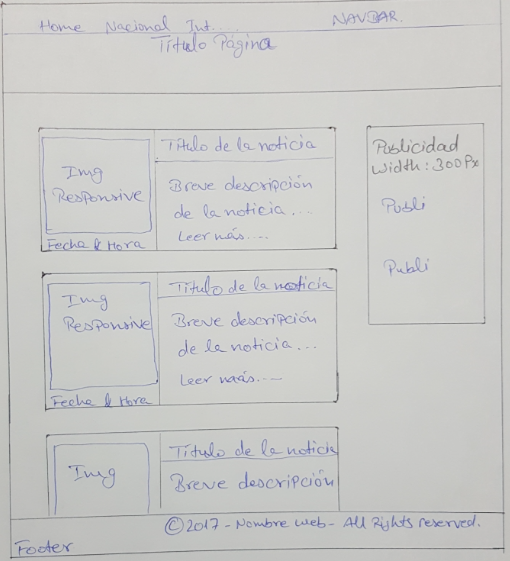 Home Nacional Int.. NAVBAR.
Título Página
Img
Responsive
Fecha & Hora
Título de la noticia
Breve descripción
de la noticia...
Leer más....
Img
Responsive
Fecha & Hora
Título de la noticia
Breve descripción
de la noticia...
Leer maás....
Img
Título de la noticia
Breve descripción
Publicidad
Width: 300Px
Publi
Publi
©2017 - Nombre web - All Rights reserved.
Footer